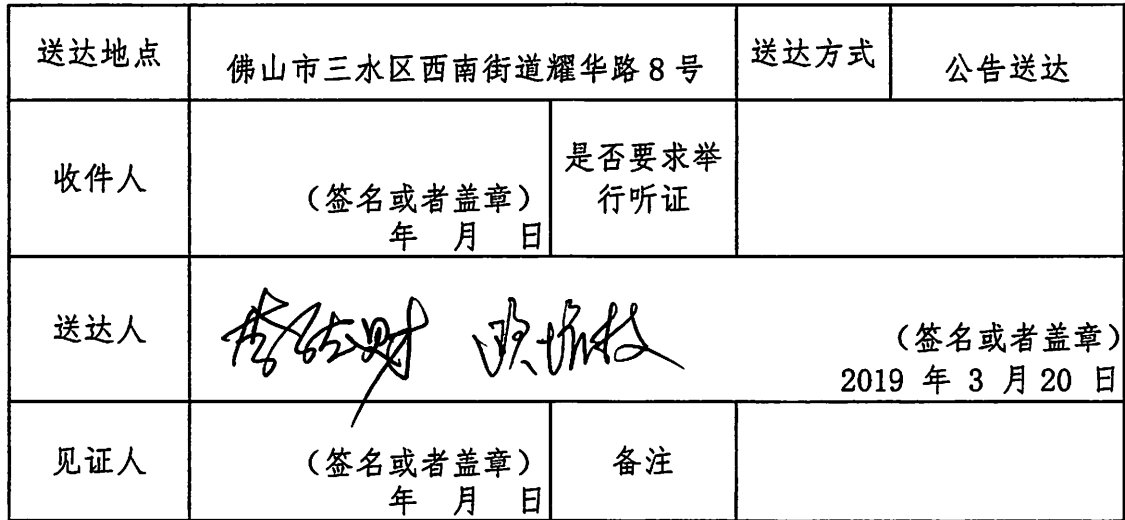 送达地点 佛山市三水区西南街道耀华路8号 送达方式 公告送达
收件人
(签名或者盖章)
年 月 日
是否要求举
行听证
送达人
(签名或者盖章)
2019 年 3 月 20 日
见证人
(签名或者盖章)
年 月 日
备注